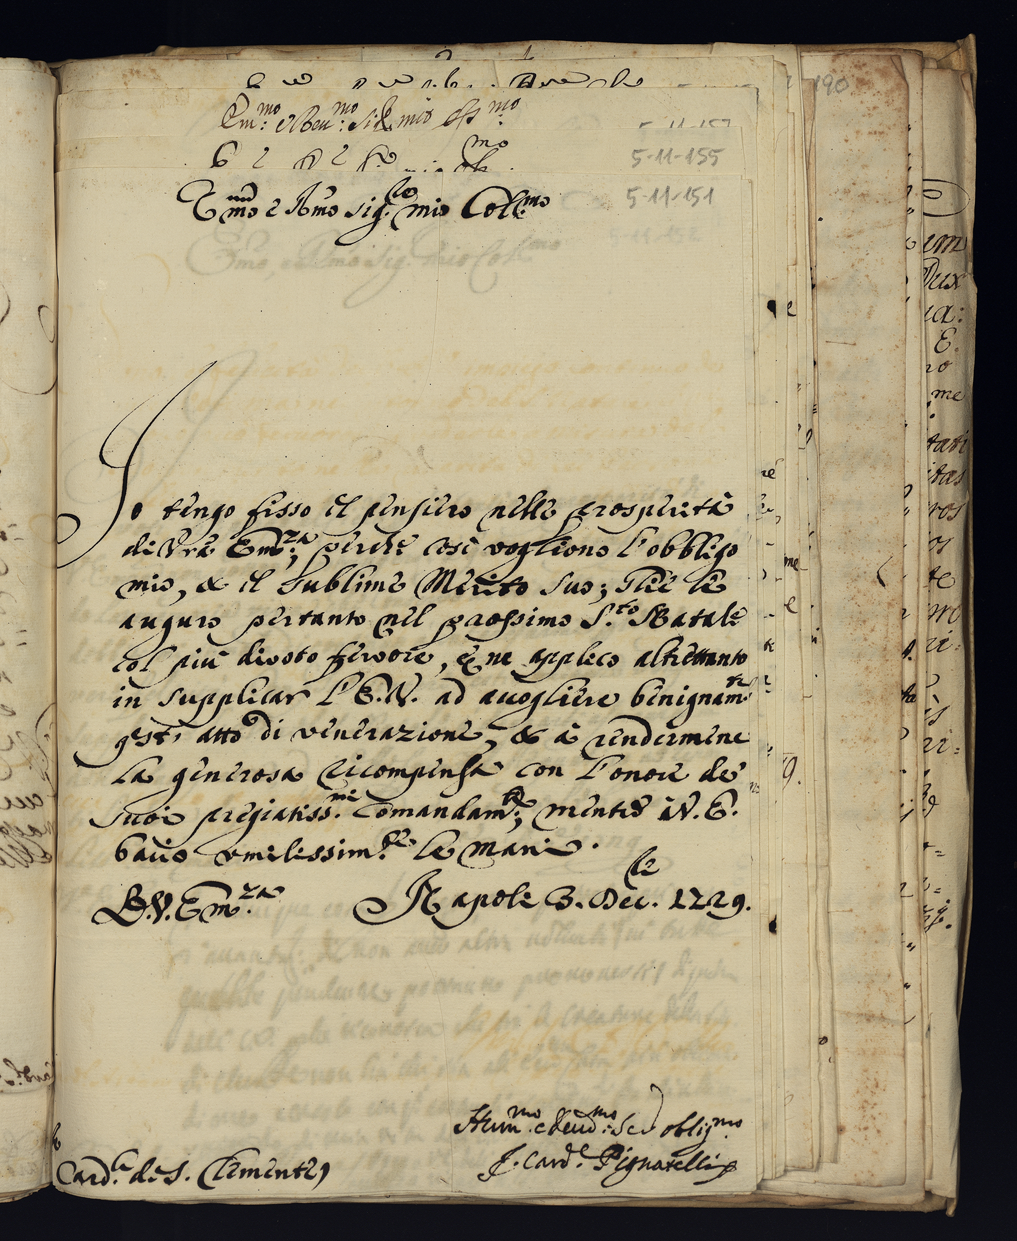 5-11-155
5-11-151
190
Em.mo e Rmo Sig.re mio Coll.mo
Io tengo fisso il pensiero nelle prosperità
di Vrã Em.za, perche così vogliono l'obbligo
mio, & il sublime Merito suo; Glie le
auguro pertanto nel prossimo S.to Natale
col più divoto fervore, e ne applico altrettanto
in supplicar l'E.V. ad accogliere benignam.te
gest' atto di venerazione, & à rendermene
la generosa ricompensa con l'onore de
suoi pregiatiss.mi Comandam.ti, mentre à V.E.
bacio vmilissim.te le mani.
D.V.Em.za Napoli 3. Dec.bre 1729.
Hum.mo e Deud.mo Ser obblig.mo
Card.le di S. Clemente
F. Card.le Pignatelli